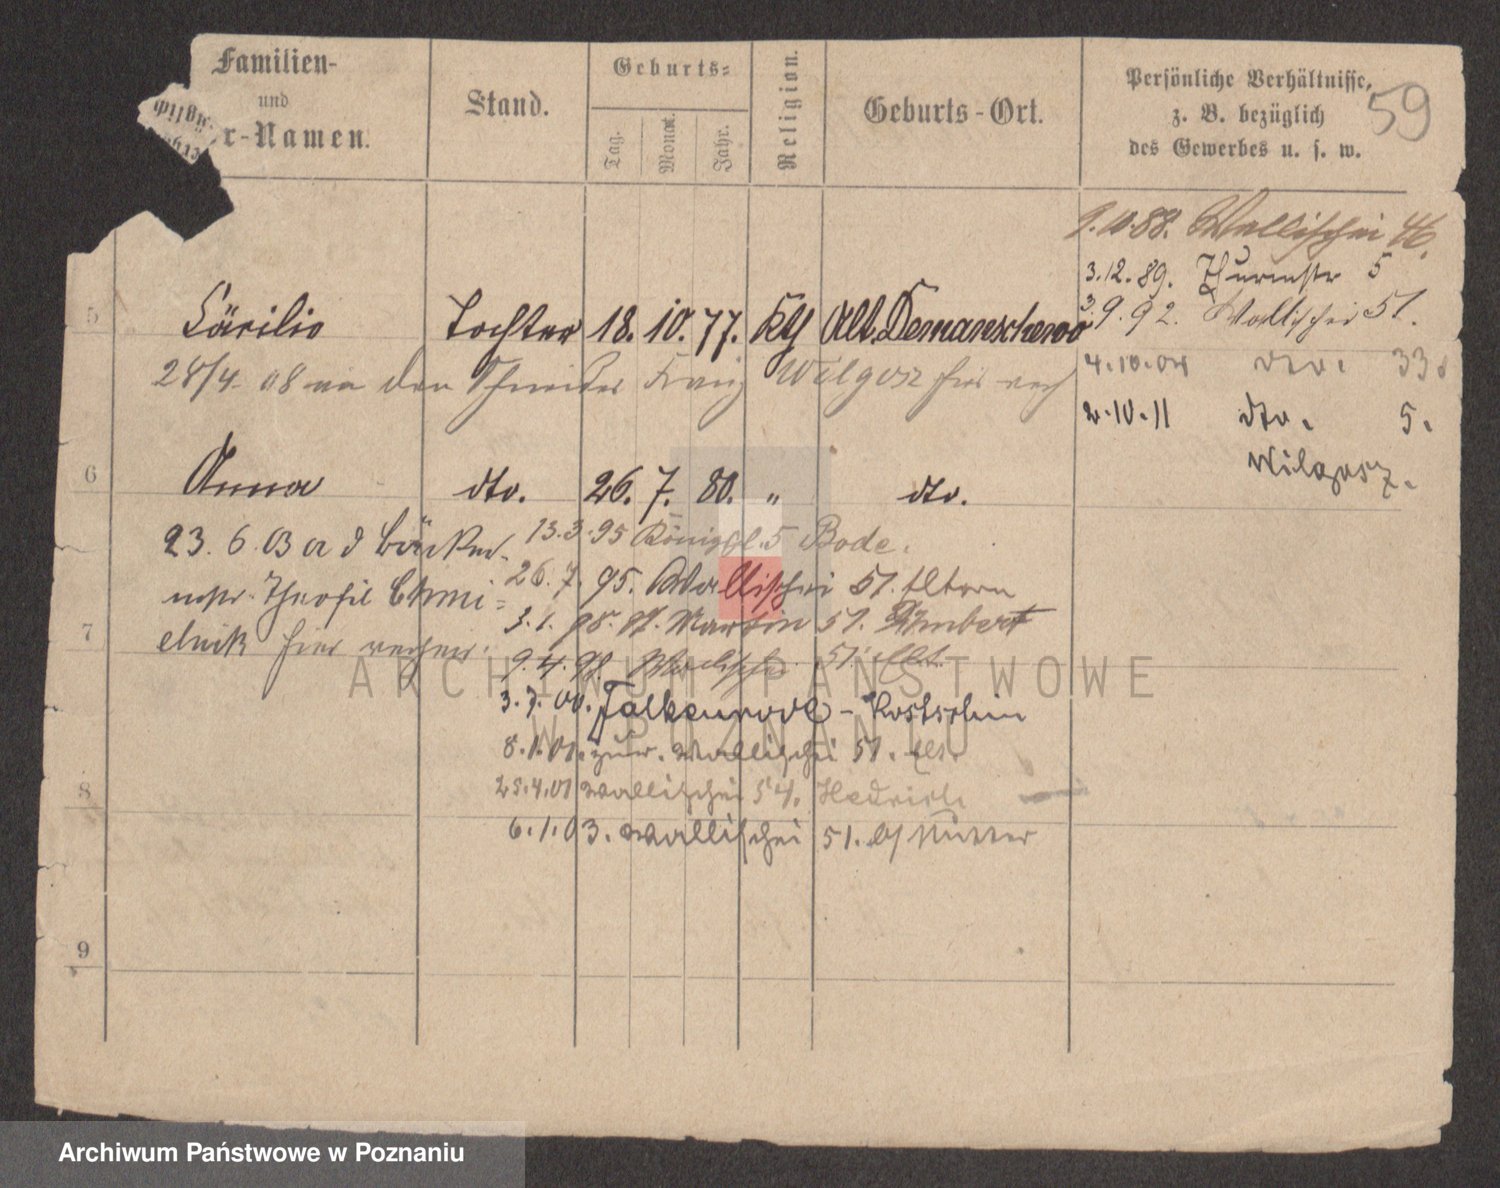 Familien-
und
r-Namen.
Stand.
Geburts-
Tag.
Monat.
Jahr.
Religion.
Geburts-Ort.
Persönliche Verhältnisse,
z. B. bezüglich
des Gewerbes u. s. w.
59
9.10.88. Wallischei 46.
3.12.89. Thurmstr 5
3.9.92. Wallischei 51.
5 Cäcilie Tochter 18. 10. 77. Kth Alt.
28/4 08 an den Schneider Franz Wilgosz hier
4.10.04 dto. 33
2.10.11 dto. 5.
Wilgosz.
6 Anna dto. 26. 7. 80. " dto.
23.6.03 a d Bäcker
13.3.95 Königspl. 5 Bode.
mstr. Theofil Chmi-
26.7.95. Wallischei 51. Eltern
3.1.98. St. Martin 57.
7
elnik hier
9.4.98. Wallischei 51. Elt.
3.7.00. Falkenrode - Kostschin
8.1.01. zur. Wallischei 51.
8
25.4.01 Wallischei 54.
6.1.03. Wallischei 51. b/ Mutter
9
ARCHIWUM PAŃSTWOWE
W POZNANIU
Archiwum Państwowe w Poznaniu